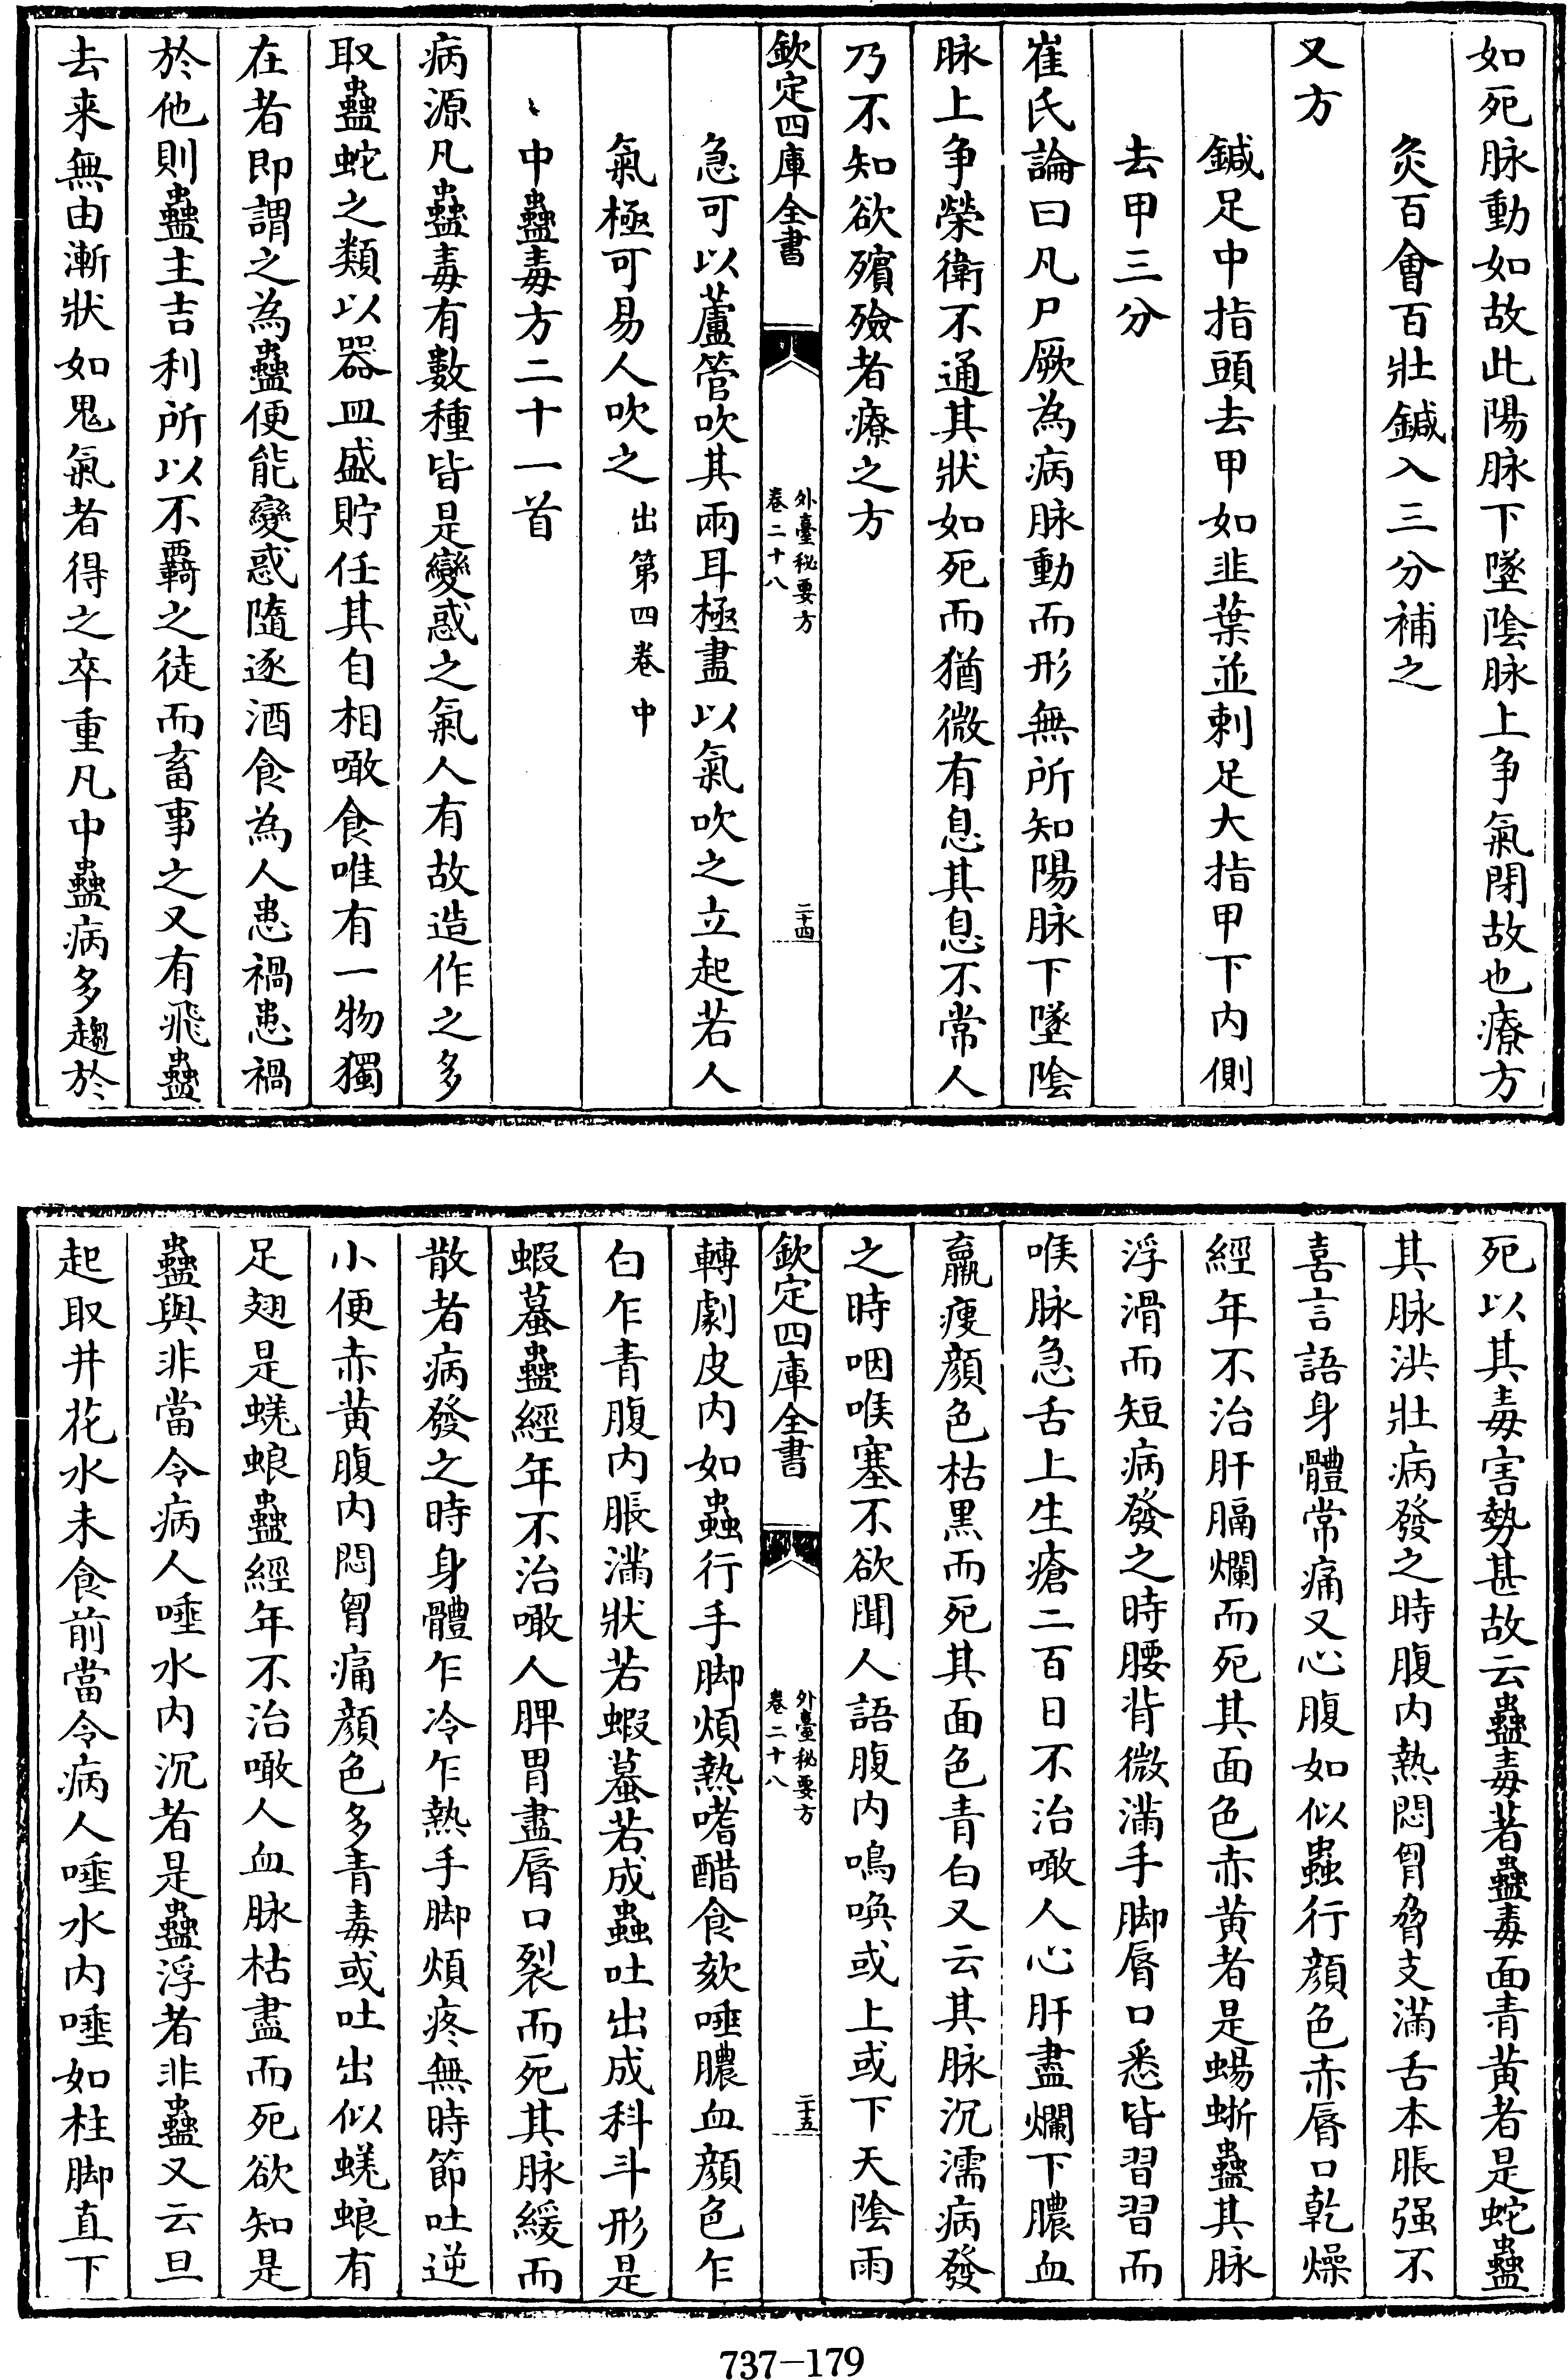 如死脉動如故此陽脉下墜陰脉上争氣閉故也療方
灸百會百壯鍼入三分補之
又方
鍼足中指頭去甲如韭葉並刺足大指甲下内側
去甲三分
崔氏論曰凡尸厥為病脉動而形無所知陽脉下墜陰
脉上争榮衛不通其狀如死而猶微有息其息不常人
乃不知欲殯殮者療之方
欽定四庫全書
外臺秘要方
卷二十八
二十四
急可以蘆管吹其兩耳極盡以氣吹之立起若人
氣極可易人吹之出第四卷中
中蠱毒方二十一首
病源凡蠱毒有數種皆是變惑之氣人有故造作之多
取蠱蛇之類以器皿盛貯任其自相噉食唯有一物獨
在者即謂之為蠱便能變惑隨逐酒食為人患禍患禍
於他則蠱主吉利所以不覊之徒而畜事之又有飛蠱
去来無由漸狀如鬼氣者得之卒重凡中蠱病多趨於
死以其毒害勢甚故云蠱毒著蠱毒面青黄者是蛇蠱
其脉洪壯病發之時腹内熱悶胷脅支滿舌本脹强不
喜言語身體常痛又心腹如似蟲行顔色赤脣口乾燥
經年不治肝膈爛而死其面色赤黄者是蜴蜥蠱其脉
浮滑而短病發之時腰背微滿手脚脣口悉皆習習而
喉脉急舌上生瘡二百日不治噉人心肝盡爛下膿血
羸瘦顔色枯黒而死其面色青白又云其脉沉濡病發
之時咽喉塞不欲聞人語腹内鳴喚或上或下天陰雨
欽定四庫全書
外臺秘要方
卷二十八
二十五
轉劇皮内如蟲行手脚煩熱嗜醋食欬唾膿血顔色乍
白乍青腹内脹滿狀若蝦蟇若成蟲吐出成科斗形是
蝦蟇蠱經年不治噉人脾胃盡脣口裂而死其脉緩而
散者病發之時身體乍冷乍熱手脚煩疼無時節吐逆
小便赤黄腹内悶胷痛顔色多青毒或吐出似蜣蜋有
足翅是蜣蜋蠱經年不治噉人血脉枯盡而死欲知是
蠱與非當令病人唾水内沉者是蠱浮者非蠱又云旦
起取井花水未食前當令病人唾水内唾如柱脚直下
737—179